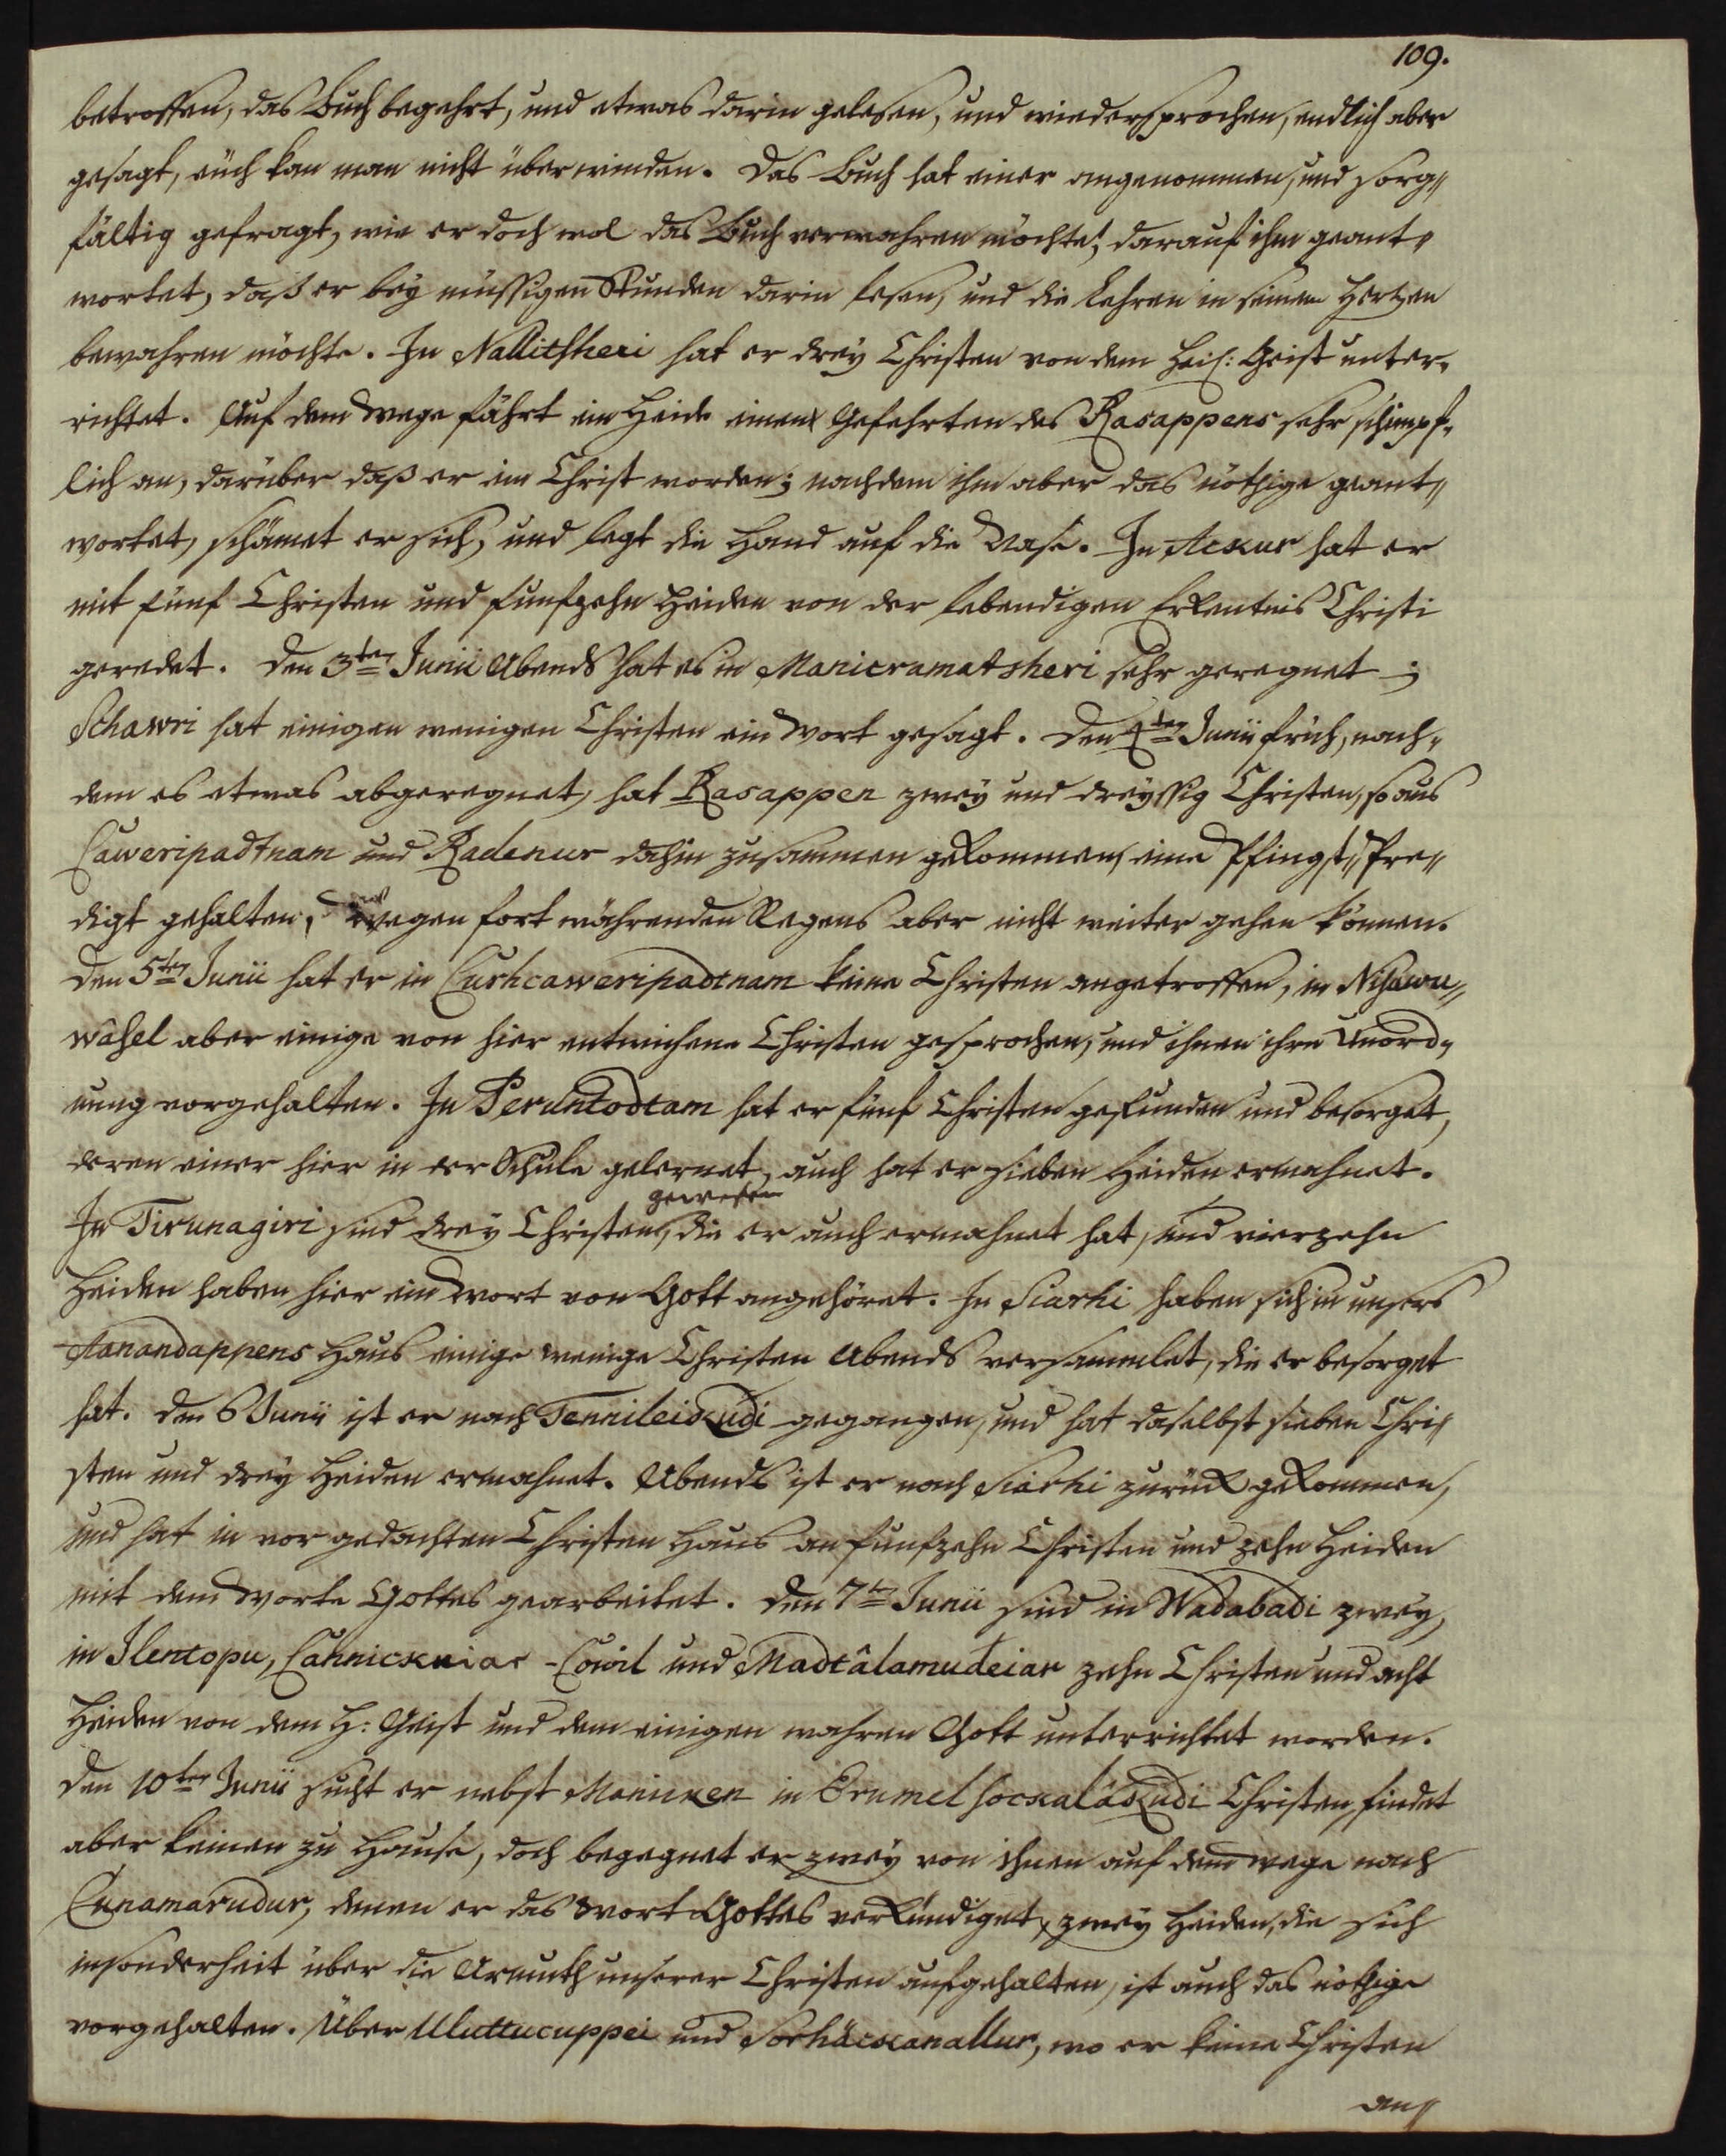 109.
betroffen, das Buch begehrt, und etwas darin gelesen, und wiedersprochen, endlich aber
gesagt, euch kan man nicht überwinden. Das Buch hat einer angenommen, und sorg„
fältig gefragt, wie er doch wol das Buch verwahren möchte; darauf ihm geant„
wortet, daß er bey müssigen Stunden darin lesen, und die Lehren in seinem Hertzen
bewahren möchte. In Nallitsheri hat er drey Christen von dem Heil: Geist unter„
richtet. Auf dem Wege fährt ein Heide einen Gefehrten des Rasappens sehr schimpf„
lich an, darüber daß er ein Christ worden; nachdem ihm aber das nöthige geant„
wortet, schämet er sich, und legt die Hand auf die Nase. In Ackur hat er
mit fünf Christen und funfzehn Heiden von der lebendigen Erkentnis Christi
geredet. Den 3ten Junii Abends hat es in Manicramatsheri sehr geregnet;
Schawri hat einigen wenigen Christen ein Wort gesagt. Den 4ten Junii früh, nach„
dem es etwas abgeregnet, hat Rasappen zwey und dreyssig Christen, so aus
Caweripadtnam und Radenur dahin zusammen gekommen, eine Pfingst„Pre„
digt gehalten, wegen fort währenden Regens aber nicht weiter gehen können.
Den 5ten Junii hat er in Curhcaweripadtnam keine Christen angetroffen, in
aber einige von hier entwichene Christen gesprochen, und ihnen ihre Unord„
nung vorgehalten. In Peruntodtam hat er fünf Christen gefunden und besorget,
deren einer hier in der Schule gelernet, auch hat er sieben Heiden ermahnet.
gewesen
In Tirunagiri sind drey Christen, die er auch ermahnet hat, und vierzehn
Heiden haben hier ein Wort von Gott angehöret. In Siarhi haben sich in unsers
Aanandappens Haus einige wenige Christen Abends versammlet, die er besorget
hat. Den 6 Junii ist er nach Tennileikudi gegangen, und hat daselbst sieben Chri„
sten und drey Heiden ermahnet. Abends ist er nach Siarhi zurück gekommen,
und hat in vor gedachten Christen Haus an funfzehn Christen und zehn Heiden
mit dem Worte Gottes gearbeitet. Den 7ten Junii sind in Wadabadi zwey,
in Ilentopu, Cannickiar-Cowil und Madtâlamudeiar zehn Christen und acht
Heiden von dem H: Geist und dem einigen wahren Gott unterrichtet worden.
Den 10ten Junii sucht er nebst in Christen, findet
aber keinen zu Hause, doch begegnet er zwey von ihnen auf dem Wege nach
Cunamarudur, denen er das Wort Gottes verkündiget, zwey Heiden, die sich
insonderheit über die Armuth unserer Christen aufgehalten, ist auch das nöthige
vorgehalten. Über Uluttucuppei und Sorhäckanallur, wo er keine Christen
an„